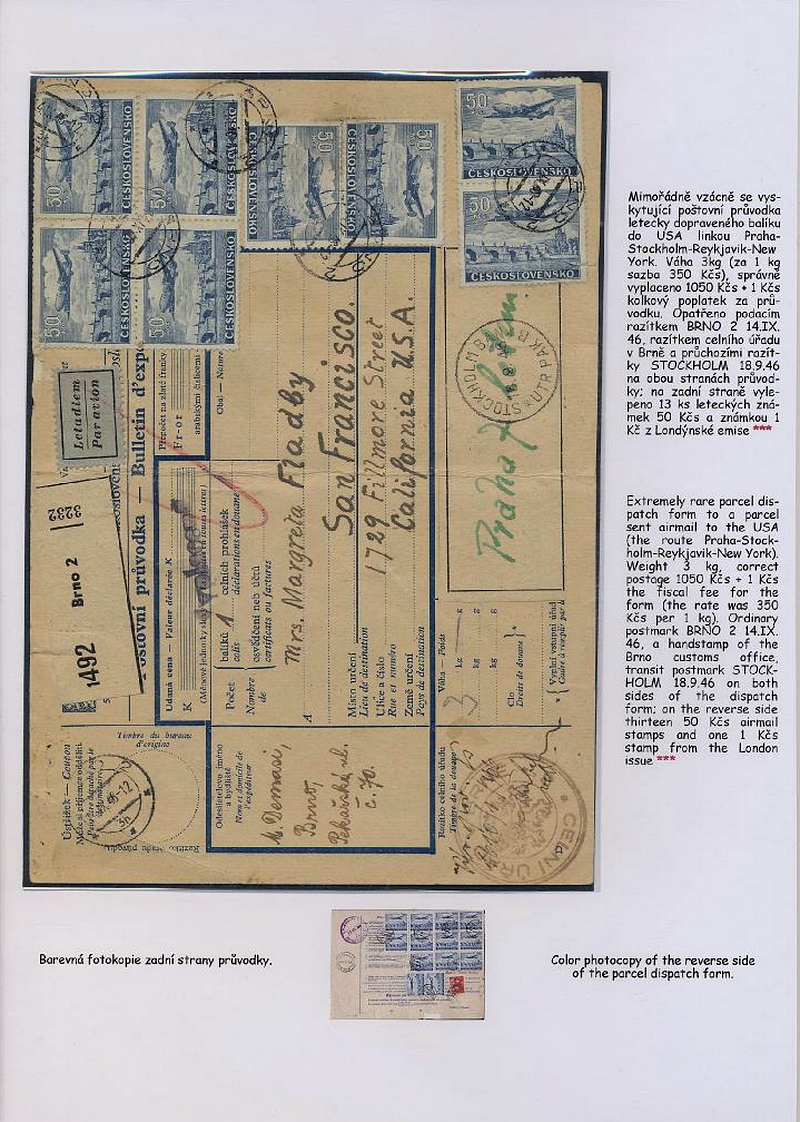 50
ČESKOSLOVENSKO
50
ČESKOSLOVENSKO
50
ČESKOSLOVENSKO
50
ČESKOSLOVENSKO
50
ČESKOSLOVENSKO
50
ČESKOSLOVENSKO
50
ČESKOSLOVENSKO
50
ČESKOSLOVENSKO
Letadlem
Par avion
3232
1492 Brno 2
Poštovní průvodka – Bulletin d'expé
Přepočet na zlaté franky
Fr-or
arabskými číslicemi
Obal – Nature
Udaná cena – Valeur déclarée K
K
Počet
Nombre
de
balíků 1
colis
celních prohlášek
déclarations en douane
osvědčení neb účtů
certificats ou factures
A
Mrs. Margreta Fladby
Místo určení
Lieu de destination
San Francisco.
Ulice a číslo
Rue et numéro
1729 Fillmore Street
Země určení
Pays de destination
California U.S.A.
Praha
STOCKHOLM
UTR PAK B
Váha – Poids
3 kg g
kg g
kg g
Clo
Droits de douane
Vyplní vstupní úřad
Ústřižek – Coupon
Může si příjemce odděliti
Timbre du bureau
d'origine
Odesílatelovo jméno
a bydliště
Nom et domicile de
l'expéditeur
M. Demasi,
Brno,
Pekařská ul.
č. 70.
Razítko celního úřadu
Timbre de la douane
CELNÍ
Mimořádně vzácně se vys-
kytující poštovní průvodka
letecky dopraveného balíku
do USA linkou Praha-
Stockholm-Reykjavik-New
York. Váha 3kg (za 1 kg
sazba 350 Kčs), správně
vyplaceno 1050 Kčs + 1 Kčs
kolkový poplatek za prů-
vodku. Opatřeno podacím
razítkem BRNO 2 14.IX.
46, razítkem celního úřadu
v Brně a průchozími razít-
ky STOCKHOLM 18.9.46
na obou stranách průvod-
ky; na zadní straně vyle-
peno 13 ks leteckých zná-
mek 50 Kčs a známkou 1
Kč z Londýnské emise ***
Extremely rare parcel dis-
patch form to a parcel
sent airmail to the USA
(the route Praha-Stock-
holm-Reykjavik-New York).
Weight 3 kg, correct
postage 1050 Kčs + 1 Kčs
the fiscal fee for the
form (the rate was 350
Kčs per 1 kg). Ordinary
postmark BRNO 2 14.IX.
46, a handstamp of the
Brno customs office,
transit postmark STOCK-
HOLM 18.9.46 on both
sides of the dispatch
form; on the reverse side
thirteen 50 Kčs airmail
stamps and one 1 Kčs
stamp from the London
issue ***
Barevná fotokopie zadní strany průvodky.
Color photocopy of the reverse side
of the parcel dispatch form.